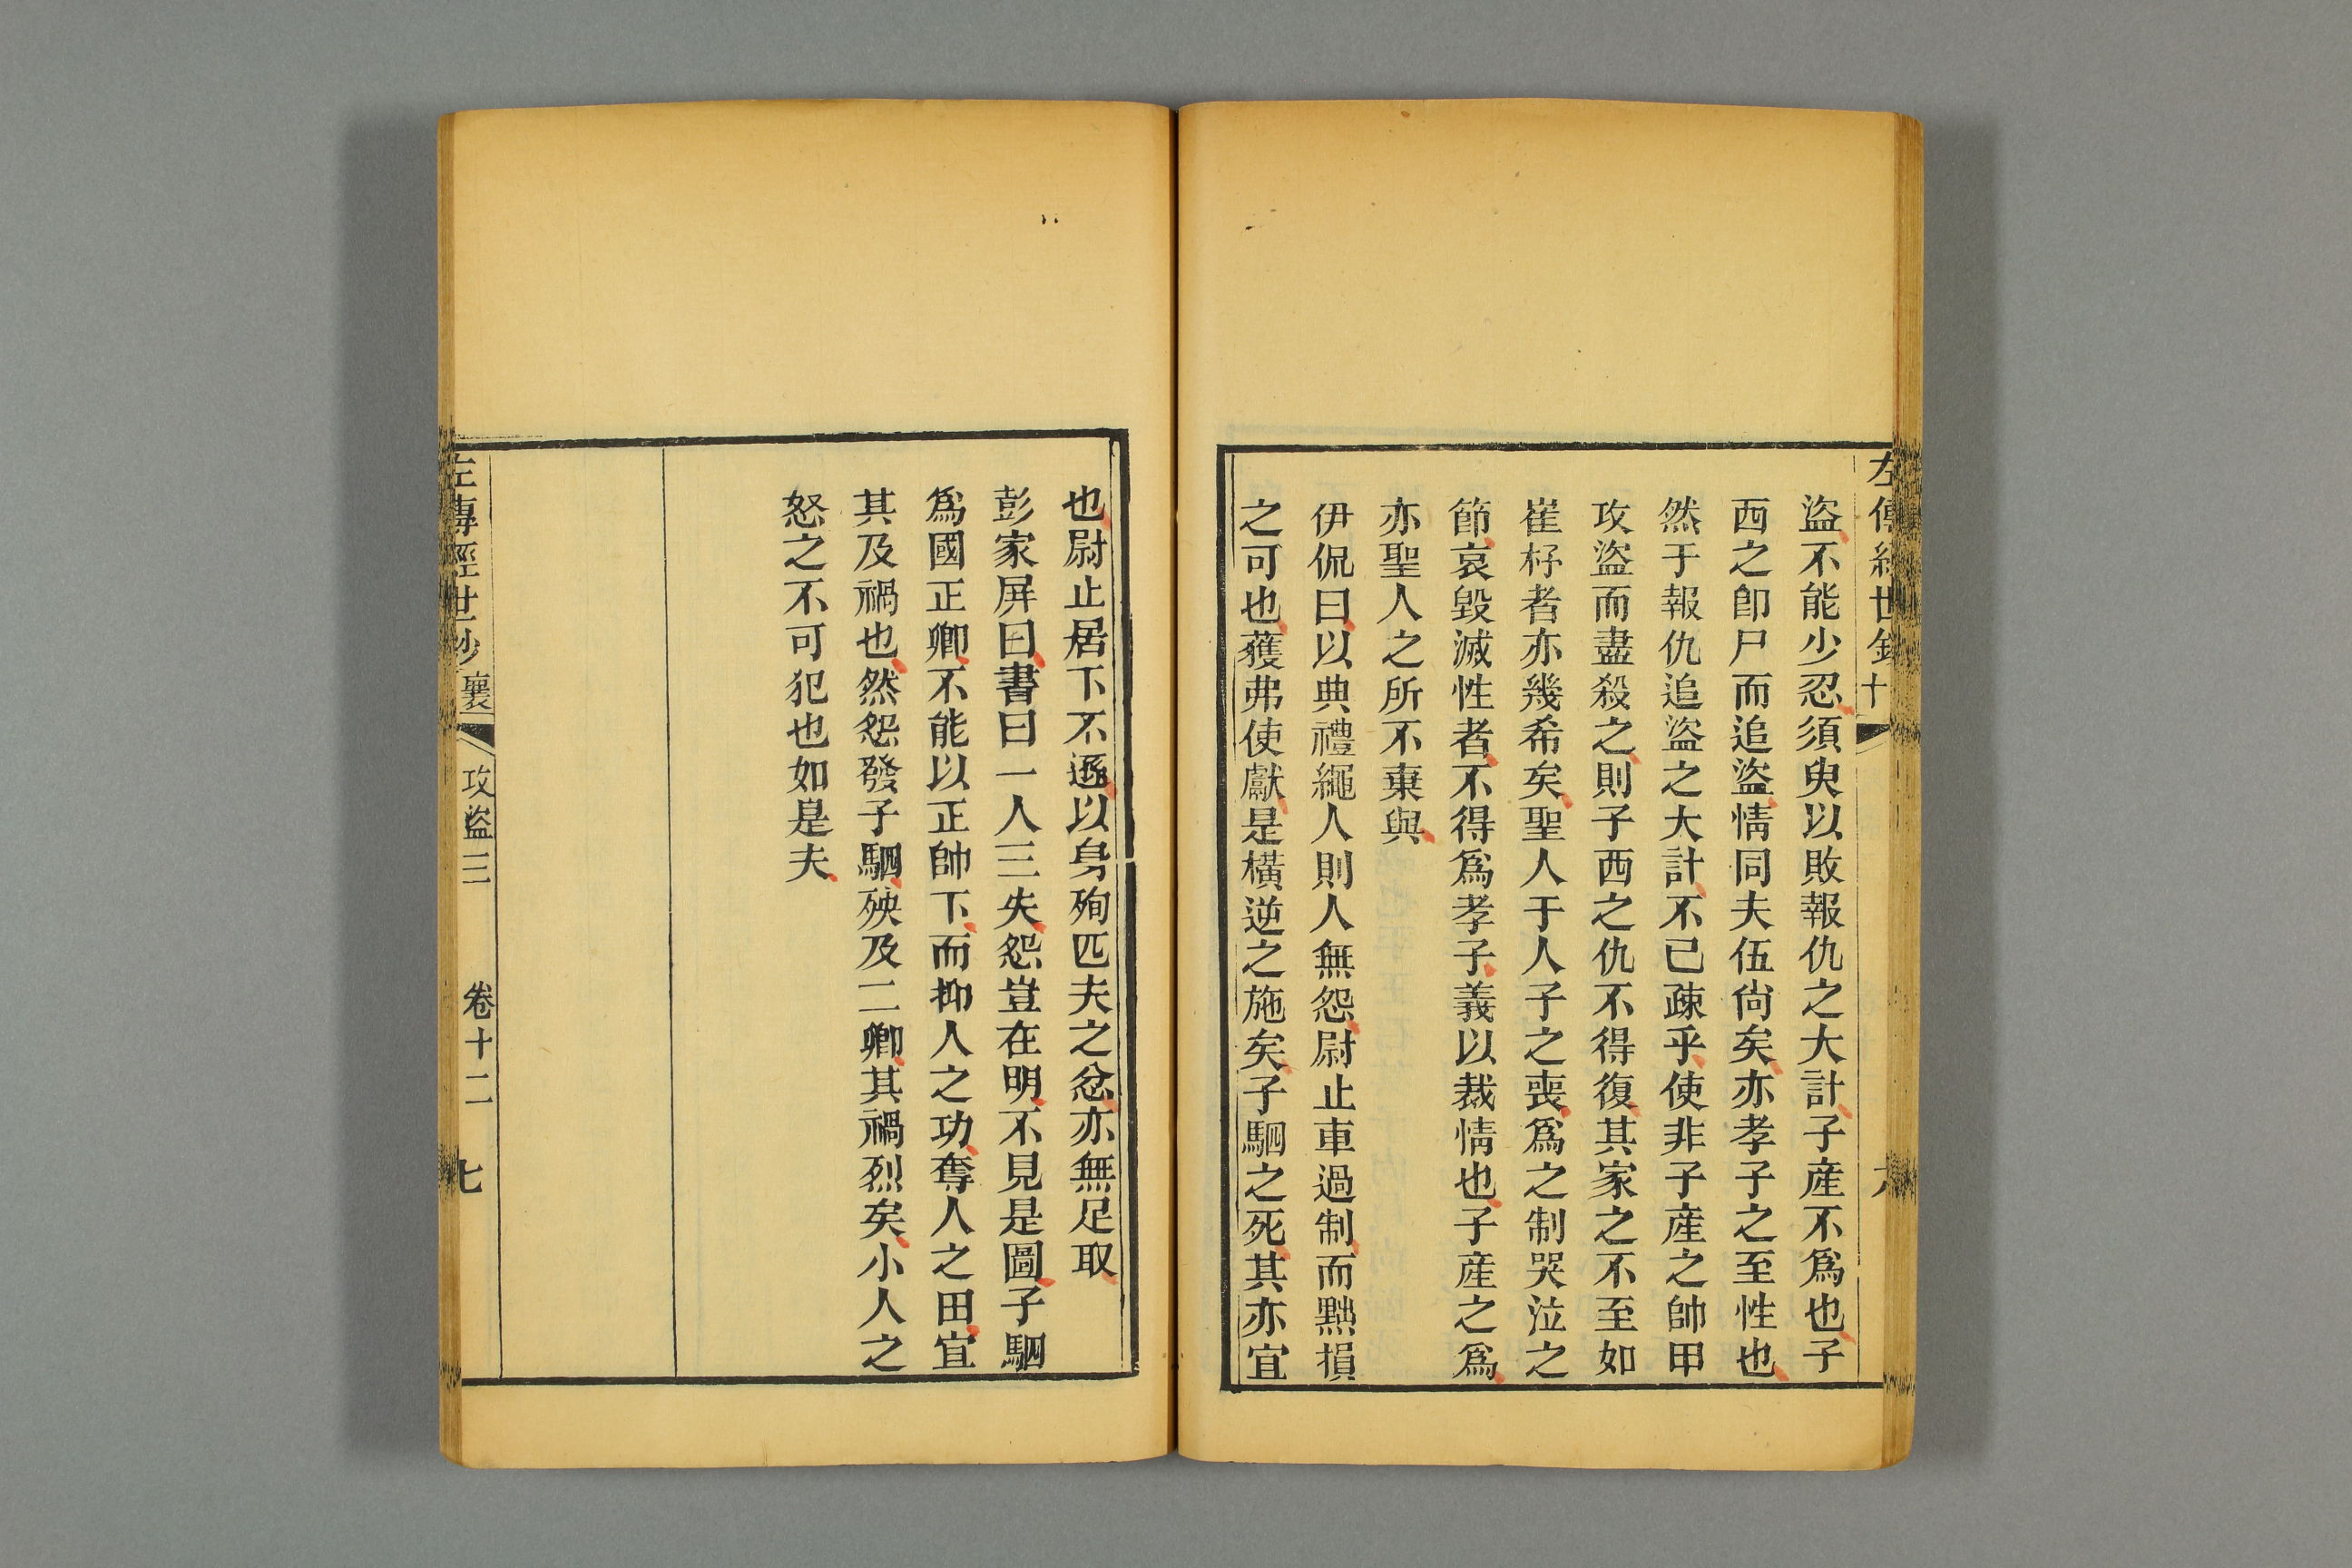 左傳經世鈔十
盜不能少忍須臾以敗報仇之大計子產不爲也子
西之卽尸而追盜情同夫伍尙矣亦孝子之至性也
然于報仇追盜之大計不已疎乎使非子產之帥甲
攻盜而盡殺之則子西之仇不得復其家之不至如
崔杼者亦幾希矣聖人于人子之喪爲之制哭泣之
節哀毀滅性者不得爲孝子義以裁情也子產之爲
亦聖人之所不棄與
伊侃曰以典禮繩人則人無怨尉止車過制而黜損
之可也蒦弗使獻是橫逆之施矣子駟之死其亦宜
也尉止居下不遜以身殉匹夫之忿亦無足取
彭家屏曰書曰一人三失怨豈在明不見是圖子駟
爲國正卿不能以正帥下而抑人之功奪人之田宜
其及禍也然怨發子駟殃及二卿其禍烈矣小人之
怒之不可犯也如是夫
左傳經世鈔 襄 攻盜三 卷十二 七